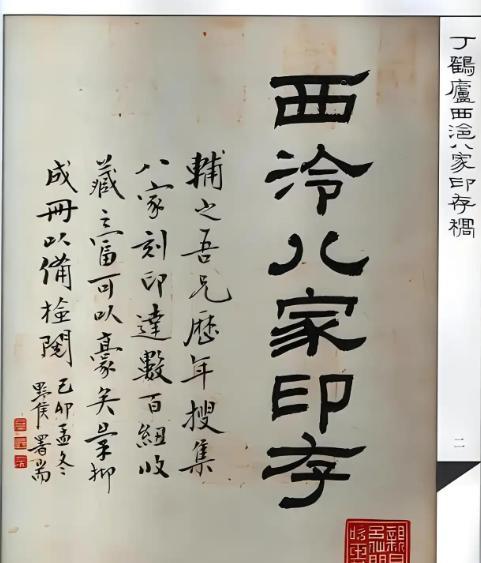 丁鶴廬西泠八家印存稿
西泠八家印存
輔之吾兄歷年搜集
八家刻印達數百紐收
藏之富可以豪矣
成冊以備檢閱 己卯孟冬
黟侯署耑
二